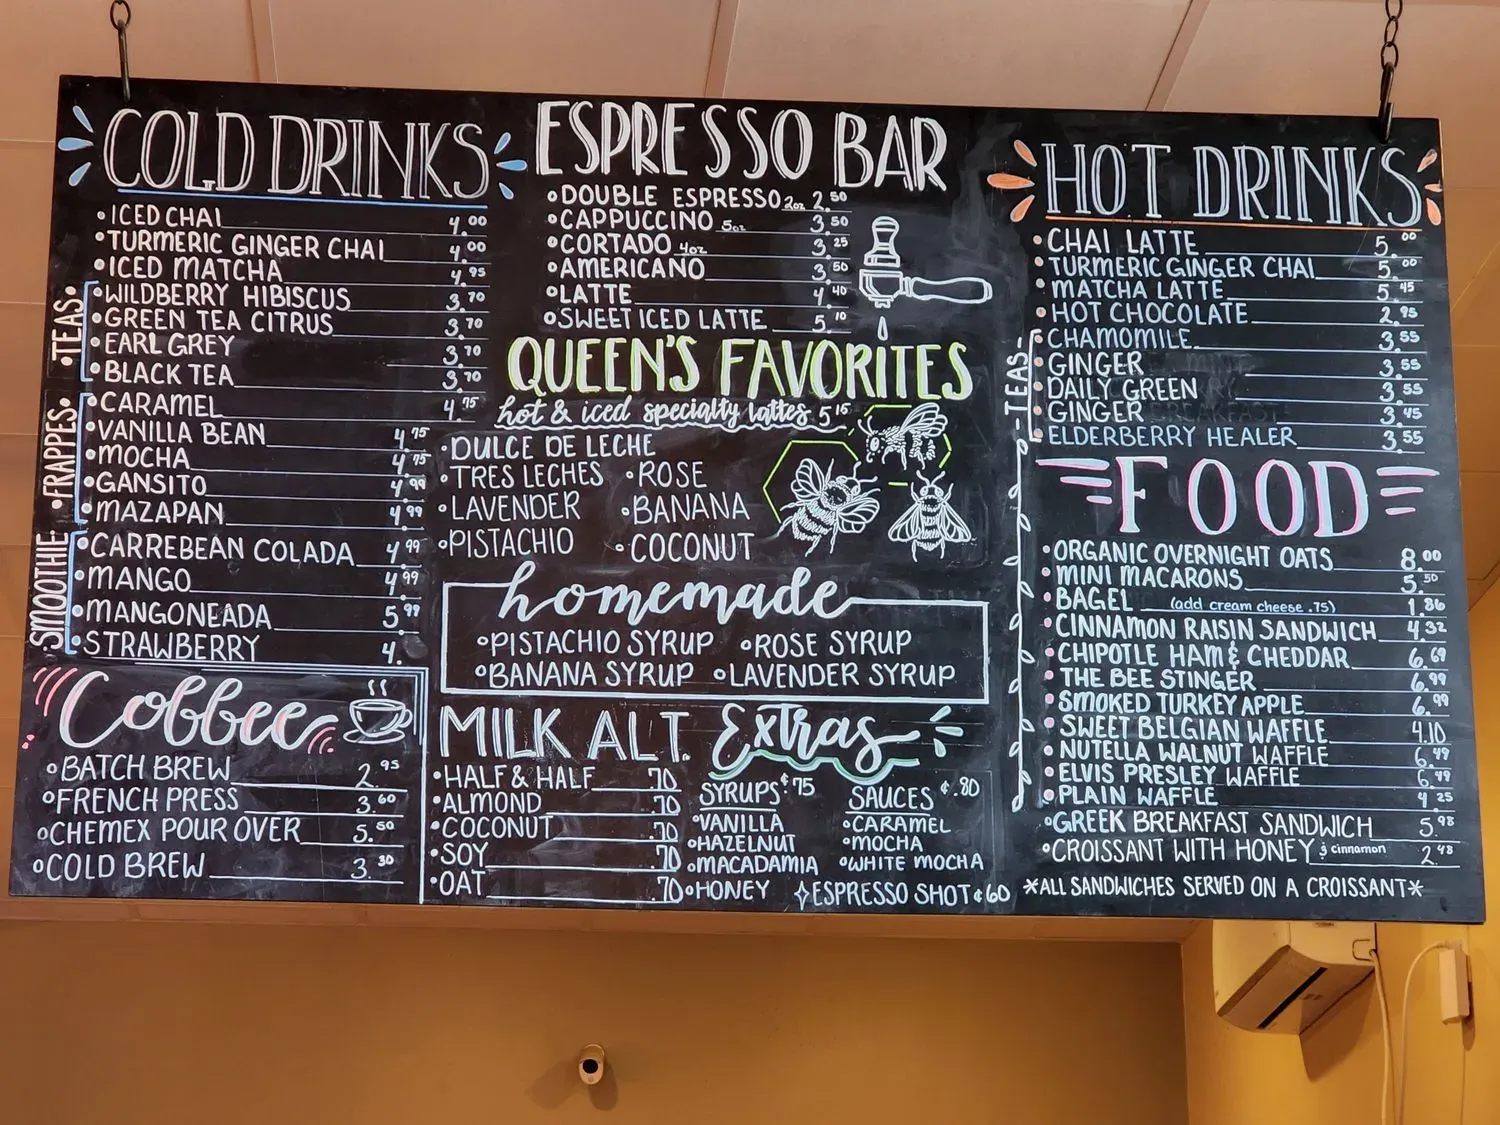 COLD DRINKS
• ICED CHAI 4.00
• TURMERIC GINGER CHAI 4.00
• ICED MATCHA 4.95
• TEAS •
• WILDBERRY HIBISCUS 3.70
• GREEN TEA CITRUS 3.70
• EARL GREY 3.70
• BLACK TEA 3.70
• FRAPPES •
• CARAMEL 4.75
• VANILLA BEAN 4.75
• MOCHA 4.75
• GANSITO 4.99
• MAZAPAN 4.99
• SMOOTHIE •
• CARREBEAN COLADA 4.99
• MANGO 4.99
• MANGONEADA 5.99
• STRAWBERRY 4.
Coffee
• BATCH BREW 2.95
• FRENCH PRESS 3.60
• CHEMEX POUR OVER 5.50
• COLD BREW 3.30
ESPRESSO BAR
• DOUBLE ESPRESSO 2oz 2.50
• CAPPUCCINO 5oz 3.50
• CORTADO 4oz 3.25
• AMERICANO 3.50
• LATTE 4.40
• SWEET ICED LATTE 5.10
QUEEN'S FAVORITES
hot & iced specialty lattes 5.15
• DULCE DE LECHE
• TRES LECHES • ROSE
• LAVENDER • BANANA
• PISTACHIO • COCONUT
homemade
• PISTACHIO SYRUP • ROSE SYRUP
• BANANA SYRUP • LAVENDER SYRUP
MILK ALT.
• HALF & HALF .70
• ALMOND .70
• COCONUT .70
• SOY .70
• OAT .70
Extras
SYRUPS ¢75
• VANILLA
• HAZELNUT
• MACADAMIA
• HONEY
SAUCES ¢.80
• CARAMEL
• MOCHA
• WHITE MOCHA
✧ ESPRESSO SHOT ¢60
HOT DRINKS
• CHAI LATTE 5.00
• TURMERIC GINGER CHAI 5.00
• MATCHA LATTE 5.45
• HOT CHOCOLATE 2.95
- TEAS -
• CHAMOMILE 3.55
• GINGER 3.55
• DAILY GREEN 3.55
• GINGER 3.45
• ELDERBERRY HEALER 3.55
FOOD
• ORGANIC OVERNIGHT OATS 8.00
• MINI MACARONS 5.50
• BAGEL (add cream cheese .75) 1.86
• CINNAMON RAISIN SANDWICH 4.32
• CHIPOTLE HAM & CHEDDAR 6.69
• THE BEE STINGER 6.99
• SMOKED TURKEY APPLE 6.99
• SWEET BELGIAN WAFFLE 4.10
• NUTELLA WALNUT WAFFLE 6.49
• ELVIS PRESLEY WAFFLE 6.49
• PLAIN WAFFLE 4.25
• GREEK BREAKFAST SANDWICH 5.98
• CROISSANT WITH HONEY & cinnamon 2.48
*ALL SANDWICHES SERVED ON A CROISSANT*